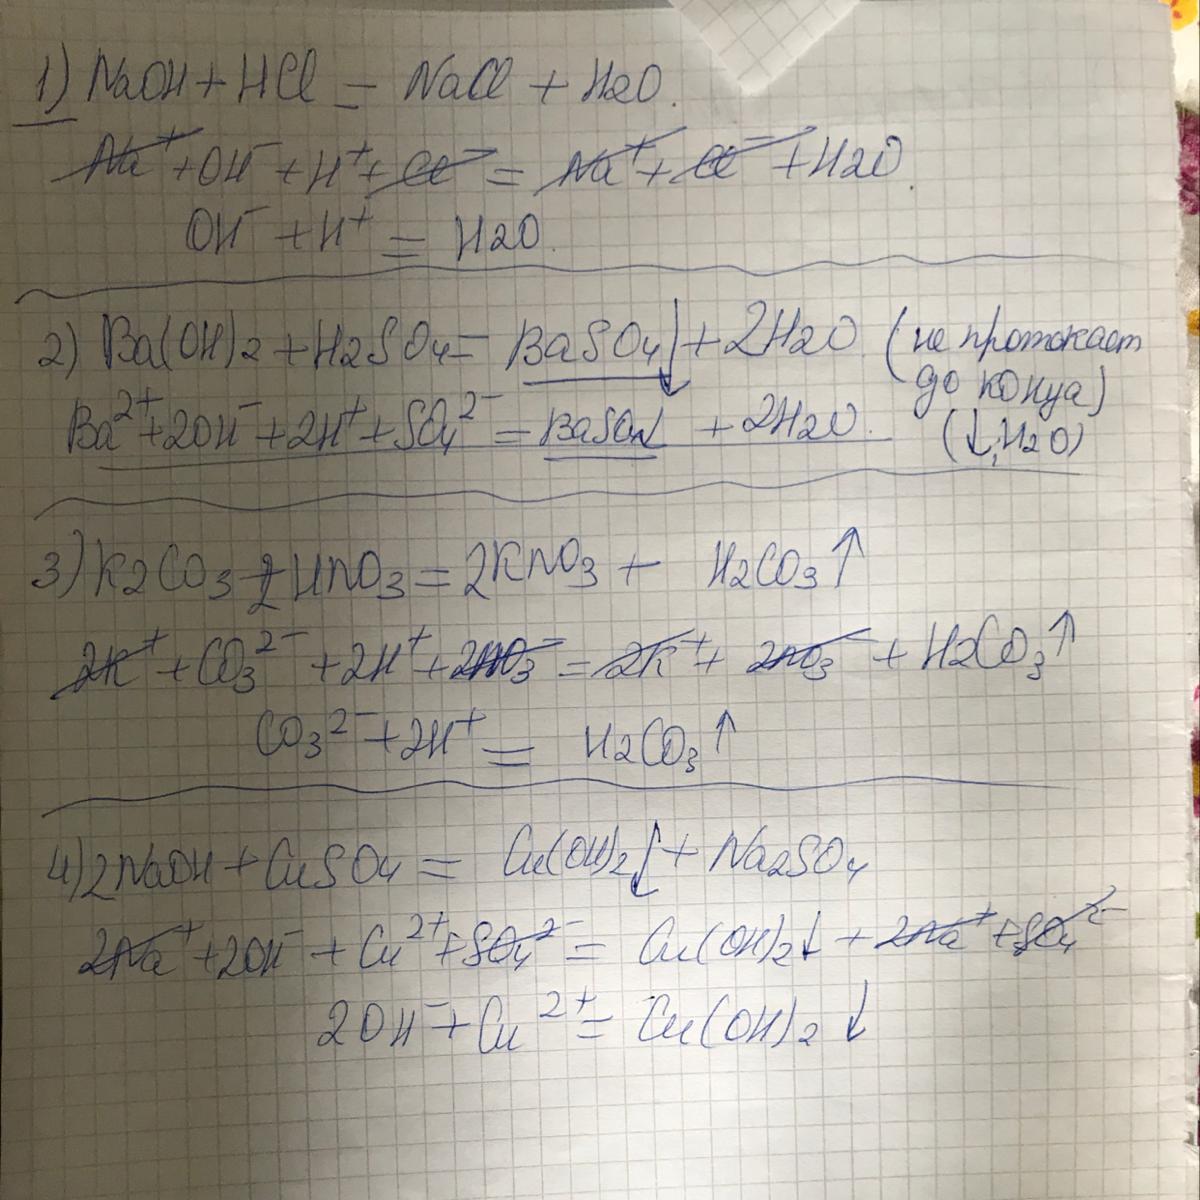 1) NaOH + HCl = NaCl + H2O.
Na⁺ + OH⁻ + H⁺ + Cl⁻ = Na⁺ + Cl⁻ + H2O.
OH⁻ + H⁺ = H2O.
2) Ba(OH)2 + H2SO4 = BaSO4↓ + 2H2O. (не протекает
до конца)
Ba²⁺ + 2OH⁻ + 2H⁺ + SO4²⁻ = BaSO4↓ + 2H2O. (↓, H2O)
3) K2CO3 + 2HNO3 = 2KNO3 + H2CO3↑
2K⁺ + CO3²⁻ + 2H⁺ + 2NO3⁻ = 2K⁺ + 2NO3⁻ + H2CO3↑
CO3²⁻ + 2H⁺ = H2CO3↑
4) 2NaOH + CuSO4 = Cu(OH)2↓ + Na2SO4
2Na⁺ + 2OH⁻ + Cu²⁺ + SO4²⁻ = Cu(OH)2↓ + 2Na⁺ + SO4²⁻
2OH⁻ + Cu²⁺ = Cu(OH)2↓